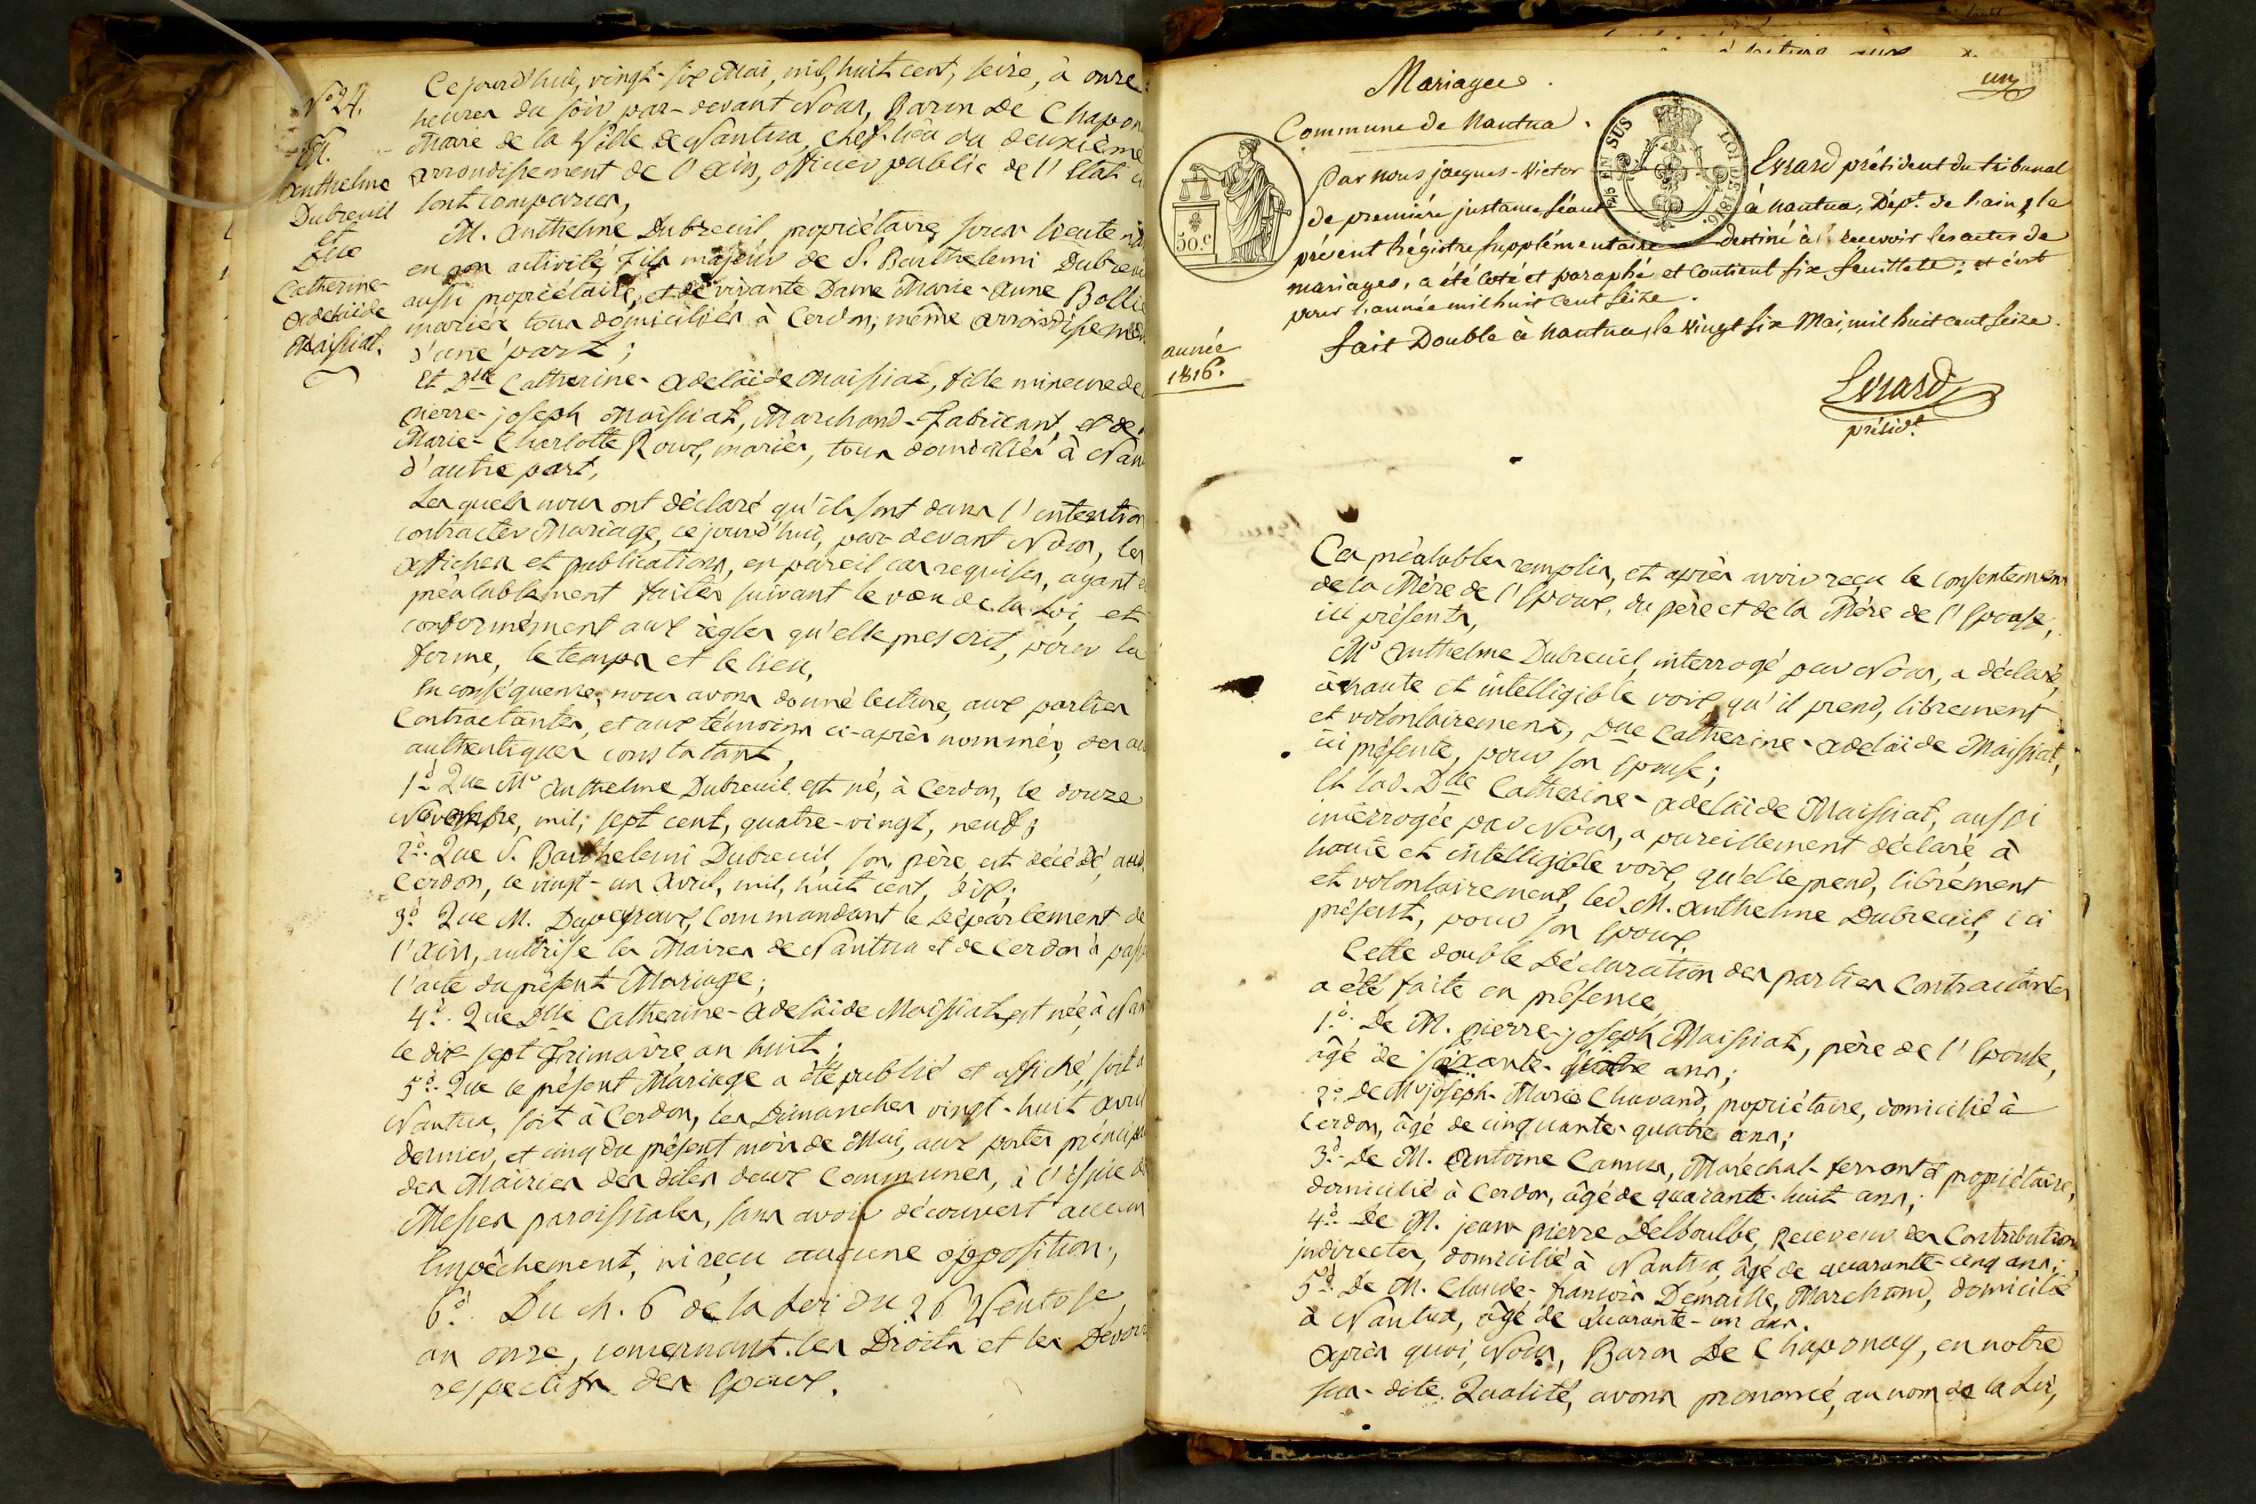 N.º 27.
M.
Anthelme
Dubreuil
et
Dlle
Catherine-
Adelaïde
Maissiat.
Cejourd'hui, vingt-six Mai, mil, huit cent, seize, à onze
heures du soir, par-devant Nous, Baron De Chapon
Maire de la Ville de Nantua, chef-lieu du deuxième
arrondissement de l'ain, officier public de l'Etat ci
sont comparus,
M. Anthelme Dubreuil propriétaire, sous lieutenan
en non activité, fils majeur de S. Barthelemi Dubreui
aussi propriétaire, et de vivante Dame Marie-Anne Bollie
mariés tous domiciliés à Cerdon, même arrondissemen
d'une part;
Et Dlle Catherine-Adelaïde Maissiat, fille mineure de
pierre-joseph Maissiat, Marchand-fabricant, et de
Marie-Charlotte Roux, mariés, tous domiciliés à Nan
d'autre part,
Lesquels nous ont déclaré qu'ils sont dans l'intention
contracter Mariage, cejourd'hui, par-devant Nous, les
affiches et publications, en pareil cas requises, ayant é
préalablement faites suivant le vœu de la Loi, et
conformément aux règles qu'elle prescrit, pour la
forme, le temps et le lieu,
En conséquence, nous avons donné lecture, aux parties
Contractantes, et aux témoins ci-après nommés, des ac
authentiques constatant,
1.º Que Mr Anthelme Dubreuil est né, à Cerdon, le douze
Novembre, mil, sept cent, quatre-vingt, neuf;
2.º Que S. Barthelemi Dubreuil, son père est décédé, aud.
Cerdon, le vingt-un avril, mil, huit cent, dix;
3.º Que M. Dupeyroux, Commandant le département de
l'Ain, autorise les Maires de Nantua et de Cerdon à pass
l'acte du présent Mariage;
4.º Que Dlle Catherine-Adelaïde Maissiat est née, à Nan
le dix-sept frimaire an huit;
5.º Que le présent Mariage a été publié et affiché, soit à
Nantua, soit à Cerdon, les Dimanches vingt-huit avril
dernier, et cinq du présent mois de Mai, aux portes principa
des Mairies des dites deux Communes, à l'issue de
Messes paroissiales, sans avoir découvert aucun
Empêchement, ni reçu aucune opposition;
6.º Du ch. 6 de la Loi du 26 Ventose,
an onze, concernant les Droits et les Devoirs
respectifs des Epoux.
un
Mariages.
Commune de Nantua.
50.C
25 EN SUS
LOI DE 1816.
Par nous jacques-Victor Evrard président du tribunal
de première jnstance séant à Nantua, Dépt. de l'ain, le
présent Régistre Supplémentaire destiné à recevoir les actes de
mariages, a été coté et paraphé et contient six feuillets; et c'est
pour l'année mil huit cent seize.
fait Double à Nantua, le vingt six Mai, mil huit cent seize.
année
1816.
Evrard
présidt.
Ces préalables remplis, et après avoir reçu le consentement
de la Mère de l'Epoux, du père et de la Mère de l'Epouse,
ici présents,
Mr Anthelme Dubreuil, interrogé par Nous, a déclaré,
à haute et intelligible voix, qu'il prend, librement
et volontairement, Dlle Catherine-Adelaïde Maissiat,
ici présente, pour son Epouse;
Et lad. Dlle Catherine-Adelaïde Maissiat, aussi
interrogée par Nous, a pareillement déclaré, à
haute et intelligible voix, qu'elle prend, librement
et volontairement, led. M. Anthelme Dubreuil, ici
présent, pour son Epoux.
Cette double Déclaration des parties Contractantes
a été faite en présence,
1.º De M. pierre-joseph Maissiat, père de l'Epouse,
âgé de soixante-quatre ans;
2.º De Mr joseph-Marie Chavand, propriétaire, domicilié à
Cerdon, âgé de cinquante-quatre ans;
3.º De M. Antoine Camus, Maréchal-ferrant et propriétaire,
domicilié à Cerdon, âgé de quarante-huit ans;
4.º De M. jean pierre Delboulbe, Receveur des Contributions
jndirectes, domicilié à Nantua, âgé de quarante-cinq ans;
5.º De M. Claude-françois Demaille, Marchand, domicilié
à Nantua, âgé de quarante-un ans.
Après quoi, Nous, Baron De Chaponay, en notre
sus-dite Qualité, avons prononcé, au nom de la Loi,